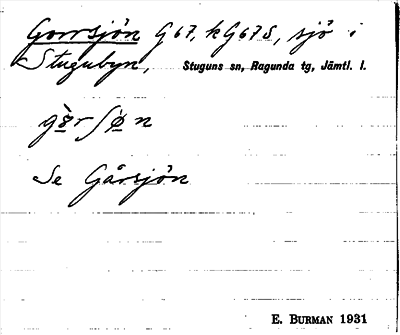 Gorrsjön G67, kG67S, sjö i
Stugubyn, Stuguns sn, Ragunda tg, Jämtl. l.
Se Gårsjön
E. BURMAN 1931